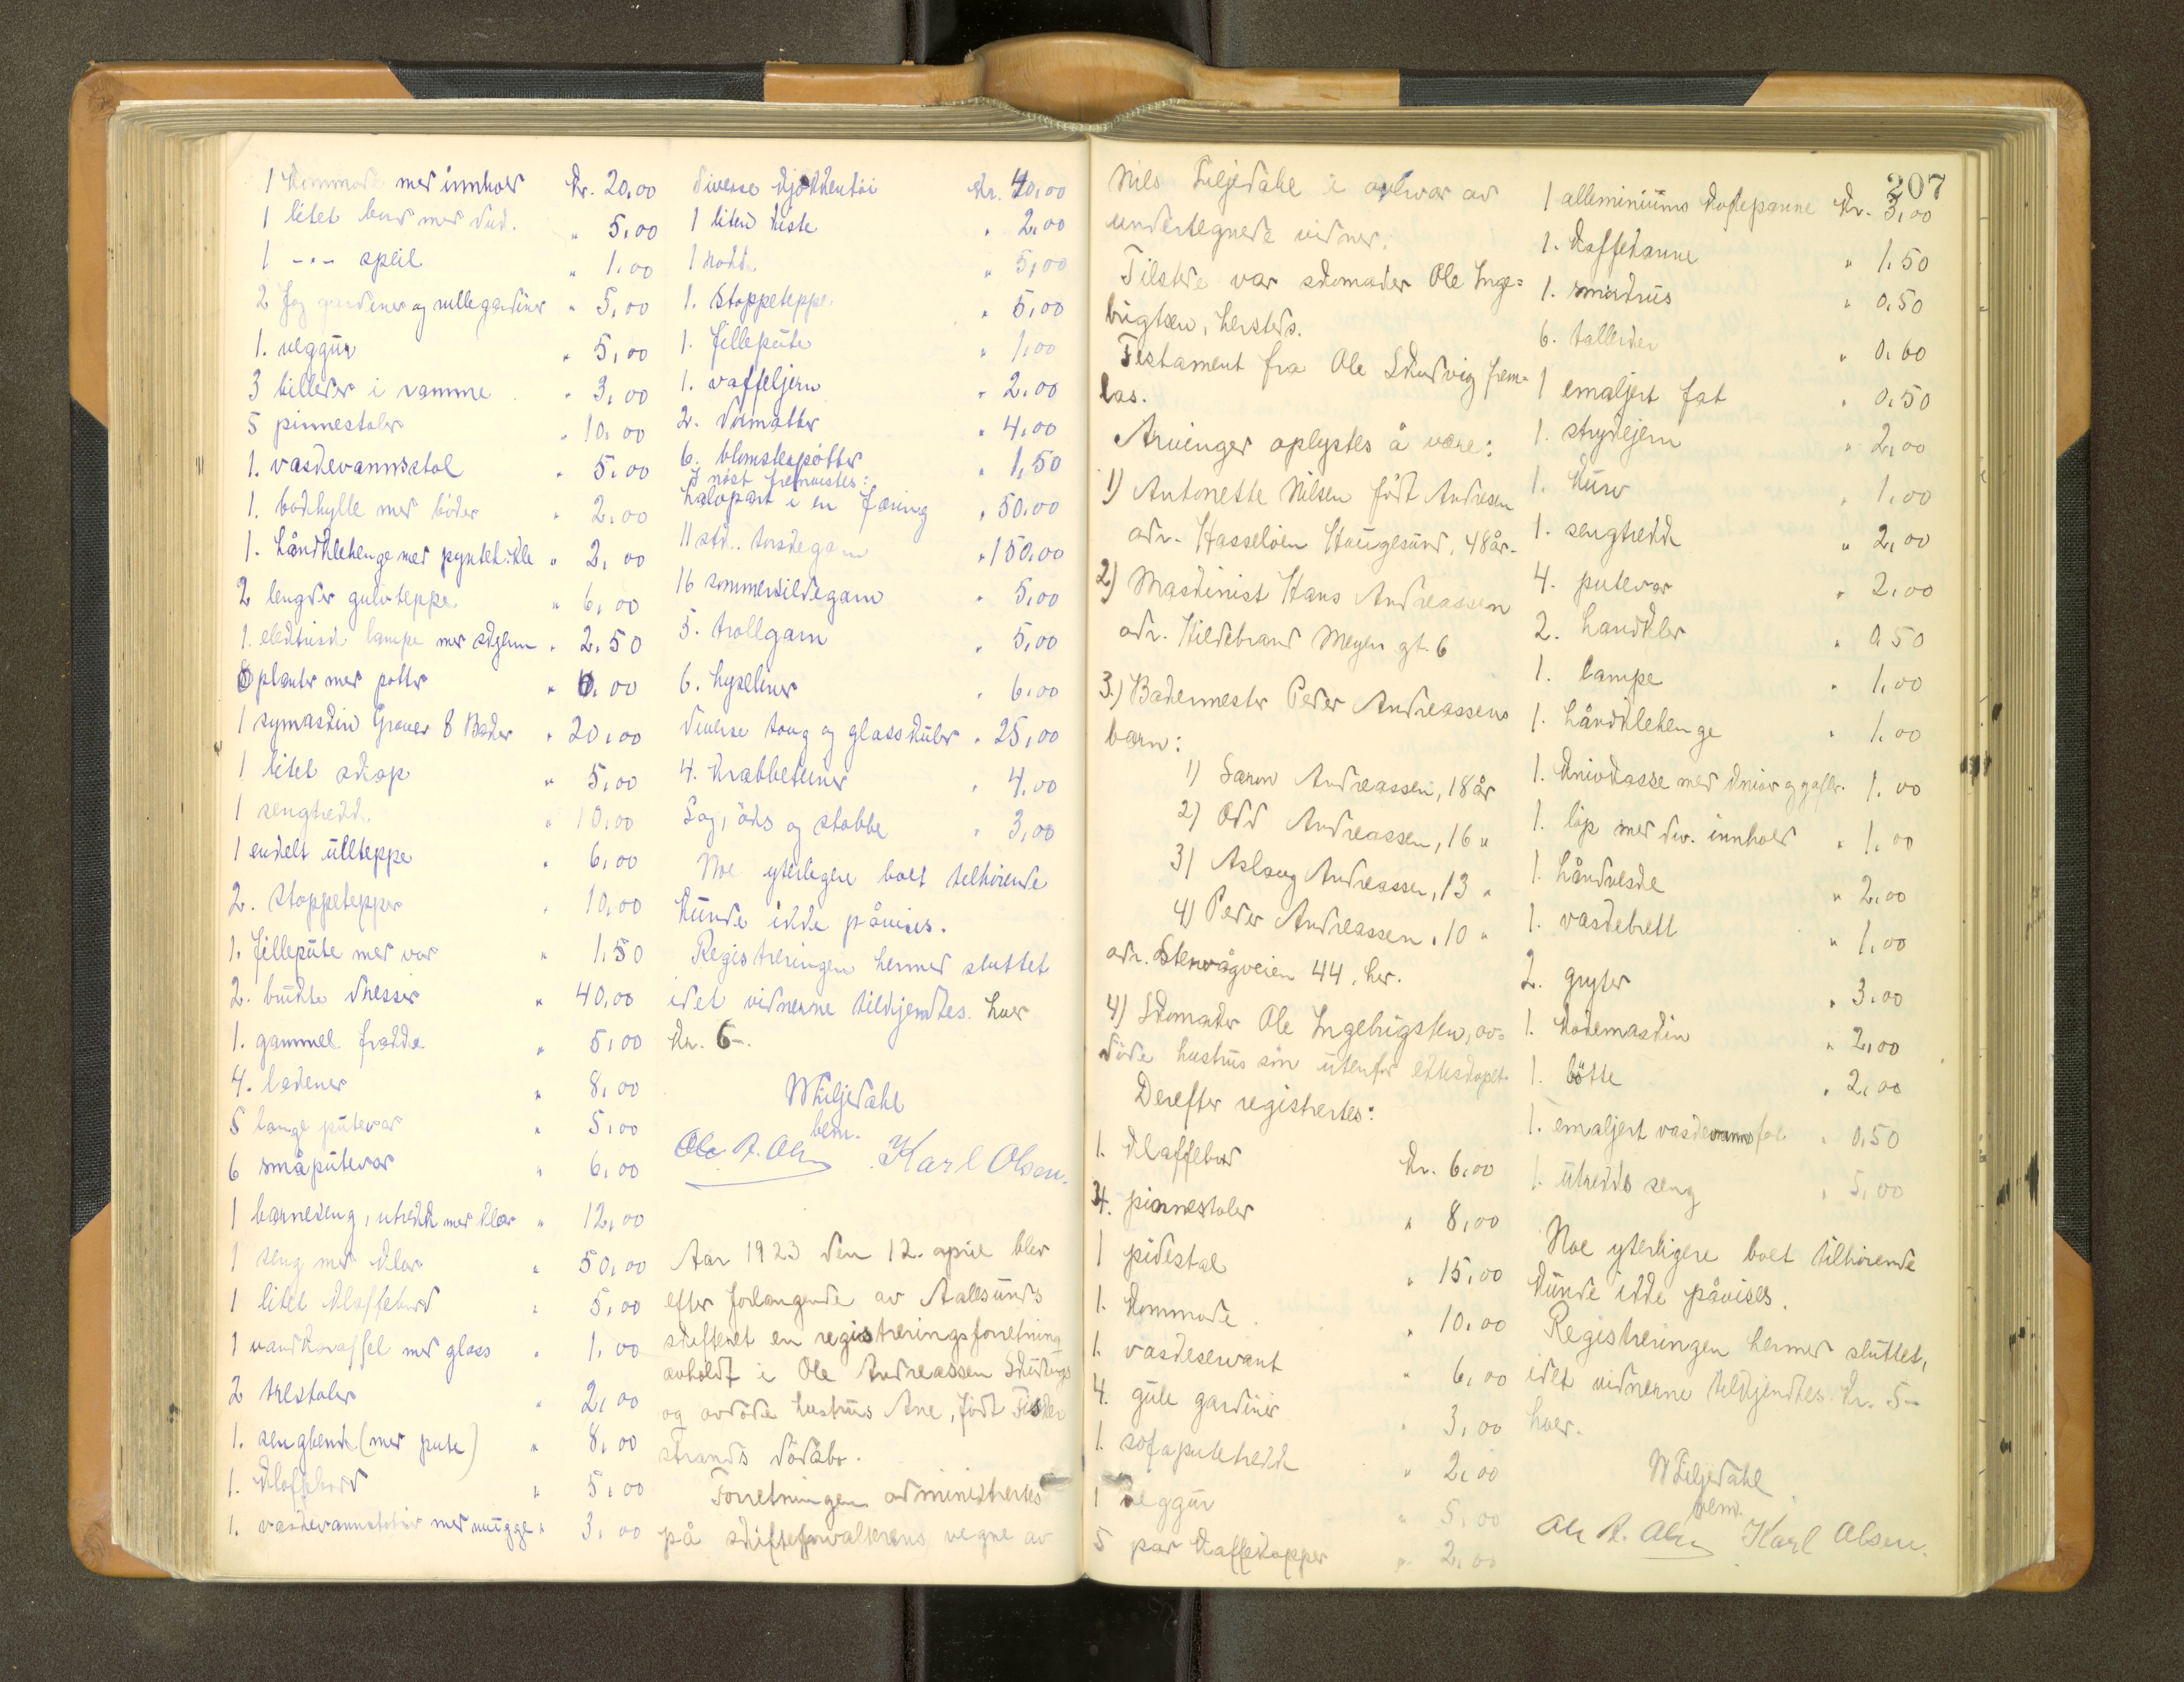 1 Kommode med innhold Kr. 20,00
1 litet bord med duk. " 5,00
1 -"- speil " 1,00
2 fag gardiner og rullegardiner " 5,00
1. veggur " 5,00
3 billeder i ramme " 3,00
5 pinnestoler " 10,00
1. vaskevannsstol " 5,00
1. bokhylle med bøker " 2,00
1. håndklehenge med pyntehåkle " 2,00
2 lengder gulvteppe " 6,00
1. elektrisk lampe med skjerm " 2,50
8 planter med potter " 6,00
1 symaskin Grover & Baker " 20,00
1 litet skap " 5,00
1 sengtrekk. " 10,00
1 enkelt ullteppe " 6,00
2. stoppetepper " 10,00
1. fillepute med var " 1,50
2. brukte dresser " 40,00
1. gammel frakke " 5,00
4. lakener " 8,00
5 lange putevar " 5,00
6 småputevar " 6,00
1 barneseng, utrekk med klær " 12,00
1 seng med klær " 50,00
1 litet klaffebord " 5,00
1 vandkaraffel med glass " 1,00
2 trestoler " 2,00
1. sengbenk (med pute) " 8,00
1. klaffebord " 5,00
1. vaskevannstobær med mugge " 3,00
diverse kjøkkentøi Kr. 40,00
1 liten kiste " 2,00
1 kokk. " 5,00
1. stoppeteppe " 5,00
1. fillepute " 1,00
1. vaffeljern " 2,00
2. dørmatter " 4,00
6. blomsterpotter " 1,50
I nøst fremvistes:
halvpart i en færing " 50,00
11 stk. torskegarn " 150,00
16 sommersildegarn " 5,00
5. trollgarn " 5,00
6. hyseliner " 6,00
diverse taug og glasskuler " 25,00
4. krabbeteiner " 4,00
Sag, øks og stabbe " 3,00
Noe yterligere boet tilhørende
kunde ikke påvises.
Registreringen hermed sluttet
idet vidnerne tilkjendtes hver
Kr. 6-.
N Liljedahl
bem.
Ole R. Olsen Karl Olsen.
Aar 1923 den 12. april blev
efter forlangende av Aalesunds
skifteret en registreringsforretning
avholdt i Ole Andreassen Skudvigs
og avdøde hustrus Ane, født Fisker
strands dødsbo.
Forretningen administrertes
på skifteforvalterens vegne av
207
Nils Liljedahl i overvær av
undertegnede vidner.
Tilstede var skomaker Ole Inge=
brigtsen, hersteds.
Testament fra Ole Skudvig frem=
las.
Arvinger oplystes å være:
1) Antonette Nilsen født Andresen
adr. Hasseløen Haugesund, 48 år.
2) Maskinist Hans Andreassen
adr. Hildebrand Meyer gt. 6
3.) Bademester Peder Andreassens
barn:
1) Saron Andreassen, 18 år
2) Odd Andreassen, 16 "
3) Aslaug Andreassen, 13 "
4) Peder Andreassen, 10 "
adr. Stenvågveien 44, her.
4) Skomaker Ole Ingebrigtsen, av=
døde hustrus søn utenfor ekteskapet.
Derefter registrertes:
1. klaffebord Kr. 6,00
4. pinnestoler " 8,00
1 pidestal " 15,00
1. kommode " 10,00
1. vaskeservant " 6,00
4. gule gardiner " 3,00
1. sofaputetrekk " 2,00
1 veggur " 5,00
5 par kaffekopper " 2,00
1 alleminiums kastepanne Kr. 3,00
1. kaffekanne " 1,50
1. småkrus " 0,50
6. tallerker " 0,60
1 emaljert fat " 0,50
1. strykejern " 2,00
1. kurv " 1,00
1. sengtrekk " 2,00
4. putevar " 2,00
2. handklær " 0,50
1. lampe " 1,00
1. håndklehenge " 1,00
1. knivkasse med kniver og gafler " 1,00
1. løp med div. innhold " 1,00
1. håndveske " 2,00
1. vaskebrett " 1,00
2. gryter " 3,00
1. kokemaskin " 2,00
1. bøtte " 2,00
1. emaljert vaskevannsfat " 0,50
1. utrekks seng " 5,00
Noe yterligere boet tilhørende
kunde ikke påvises.
Registreringen hermed sluttet,
idet vidnerne tilkjendtes Kr. 5-
hver.
N Liljedahl
bem.
Ole R. Olsen Karl Olsen.